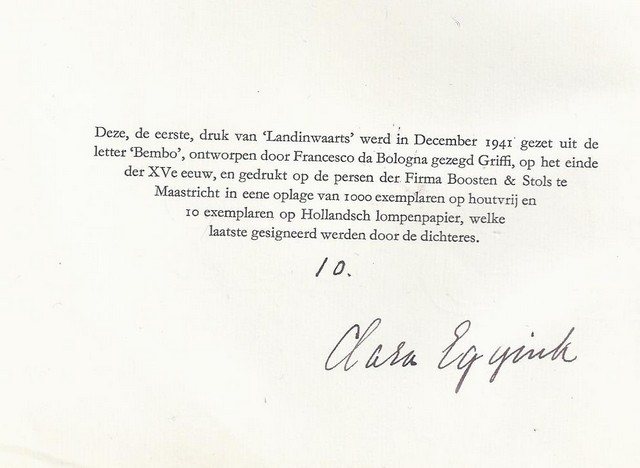 Deze, de eerste, druk van ‘Landinwaarts’ werd in December 1941 gezet uit de
letter ‘Bembo’, ontworpen door Francesco da Bologna gezegd Griffi, op het einde
der XVe eeuw, en gedrukt op de persen der Firma Boosten & Stols te
Maastricht in eene oplage van 1000 exemplaren op houtvrij en
10 exemplaren op Hollandsch lompenpapier, welke
laatste gesigneerd werden door de dichteres.
10.
Clara Eggink